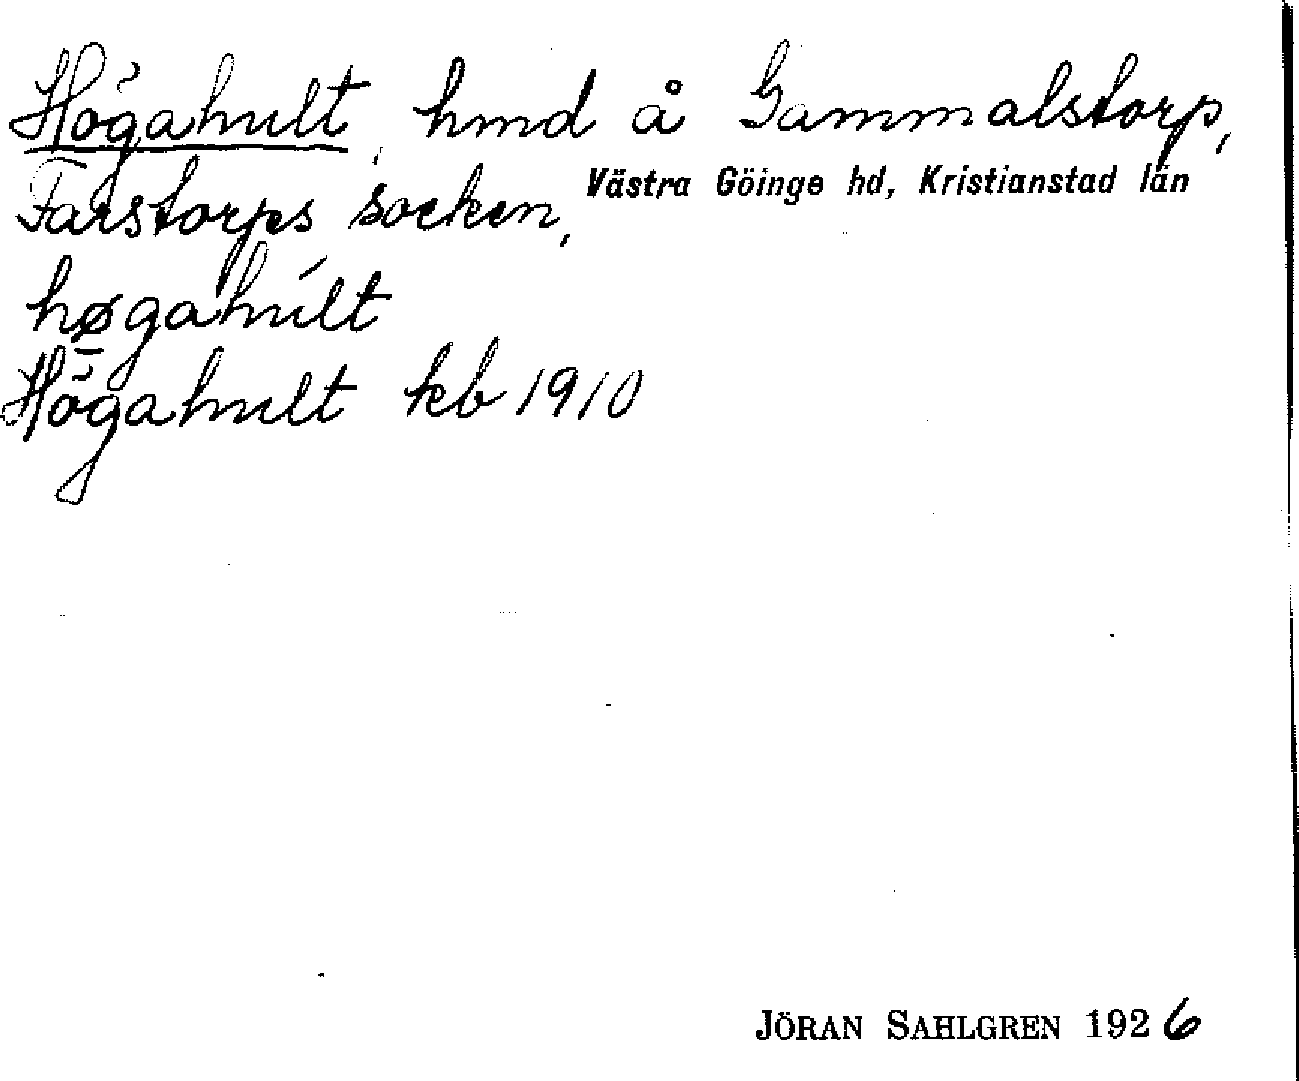 Högahult, hmd å Gammalstorp,
Farstorps socken, Västra Göinge hd, Kristianstad län
hø̱gahúlt
Högahult kb 1910
JÖRAN SAHLGREN 1926